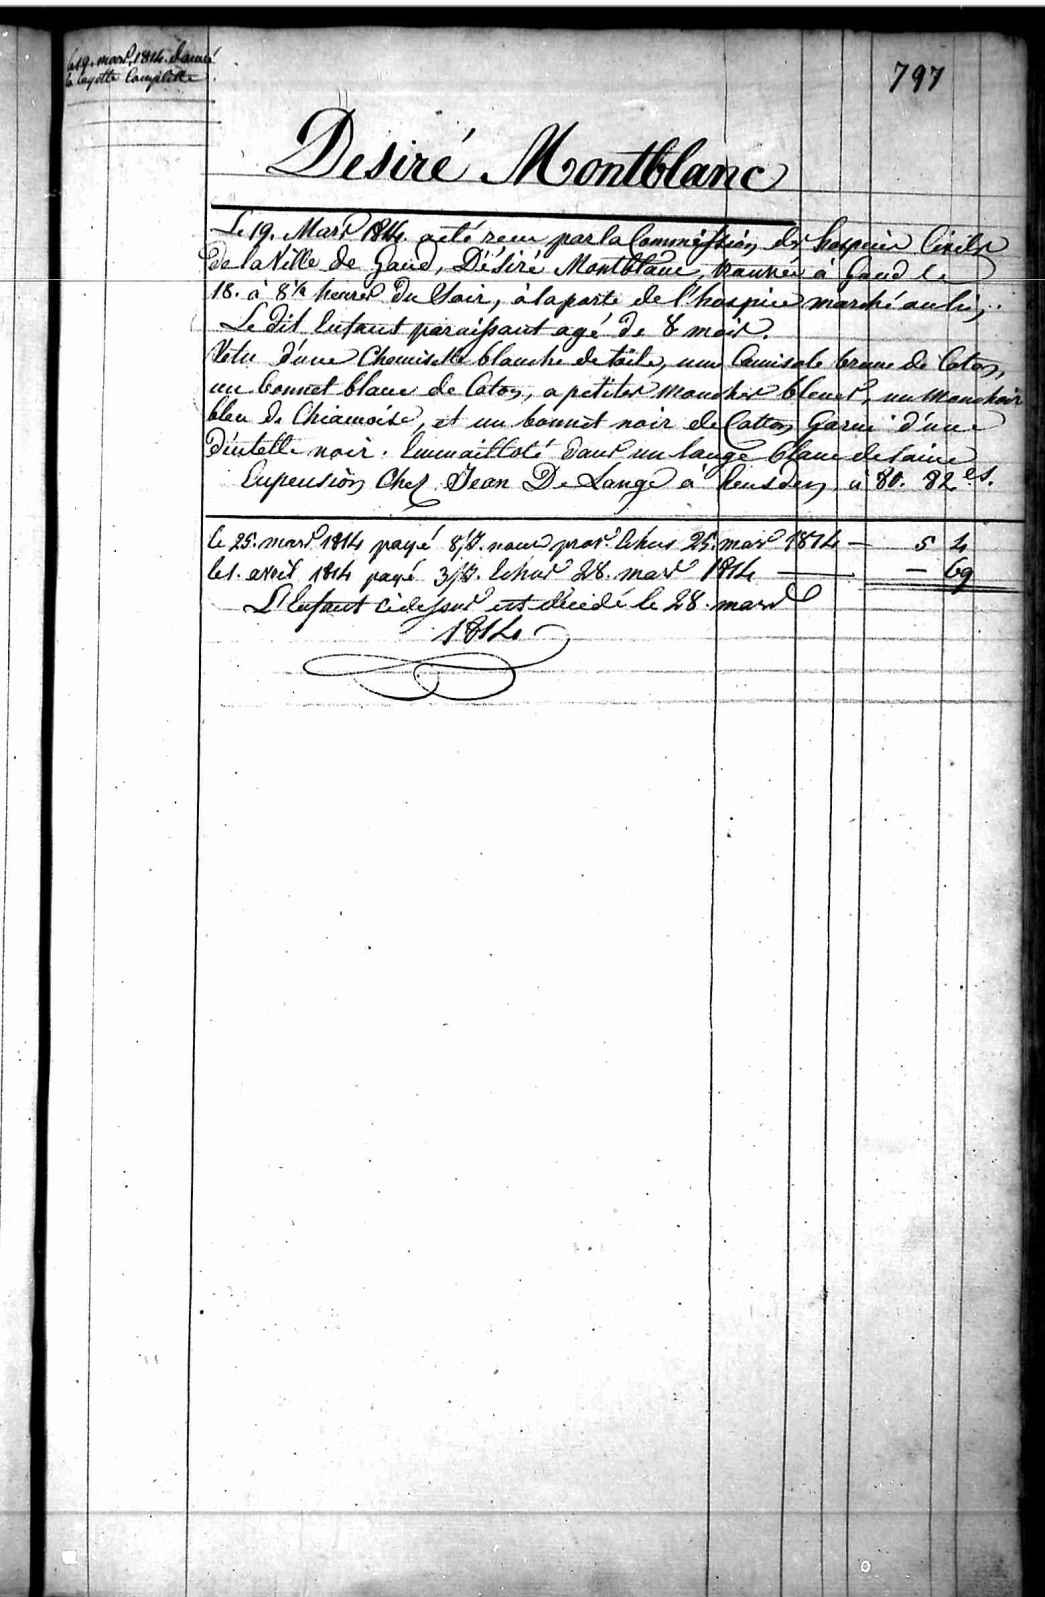 le 19. mars 1814. donné
la layette Complette.
797
Desiré Montblanc
Le 19. Mars 1814. a été recu par la Commission des hospices Civils
de la Ville de Gand, Désiré Montblanc, trouvée à Gand le
18. à 8 1/2 heures du Soir, à la porte de l'hospice marché au lin,
Le dit Enfant paraissant agé de 8 mois.
Vetu d'une Chemisette blanche de toile, une Camisole brune de Coton,
un bonnet blanc de Coton, a petites mouches bleues, un mouchoir
bleu de Chiamoise, et un bonnet noir de Cotton Garni d'une
dentelle noir. Emmailloté dans un lange blanc de laine
Enpension Chez Jean De Lange à heusden, à 80. 82 es.
le 25. mars 1814 payé 8/js. nour prov. Echus 25. mars 1814 — 5 4
le 1. avril 1814 payé 3/js. Echus 28. mars 1814 — — 69
L'Enfant cidessus est décédé le 28. mars
1814